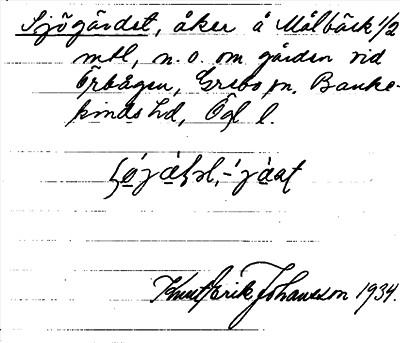 Sjögärdet, åker å Målbäck 1/2
mtl, n. o. om gården vid
Örbågen, Grebo sn, Banke-
kinds hd, Ögl l.
Knut Erik Johansson 1934.